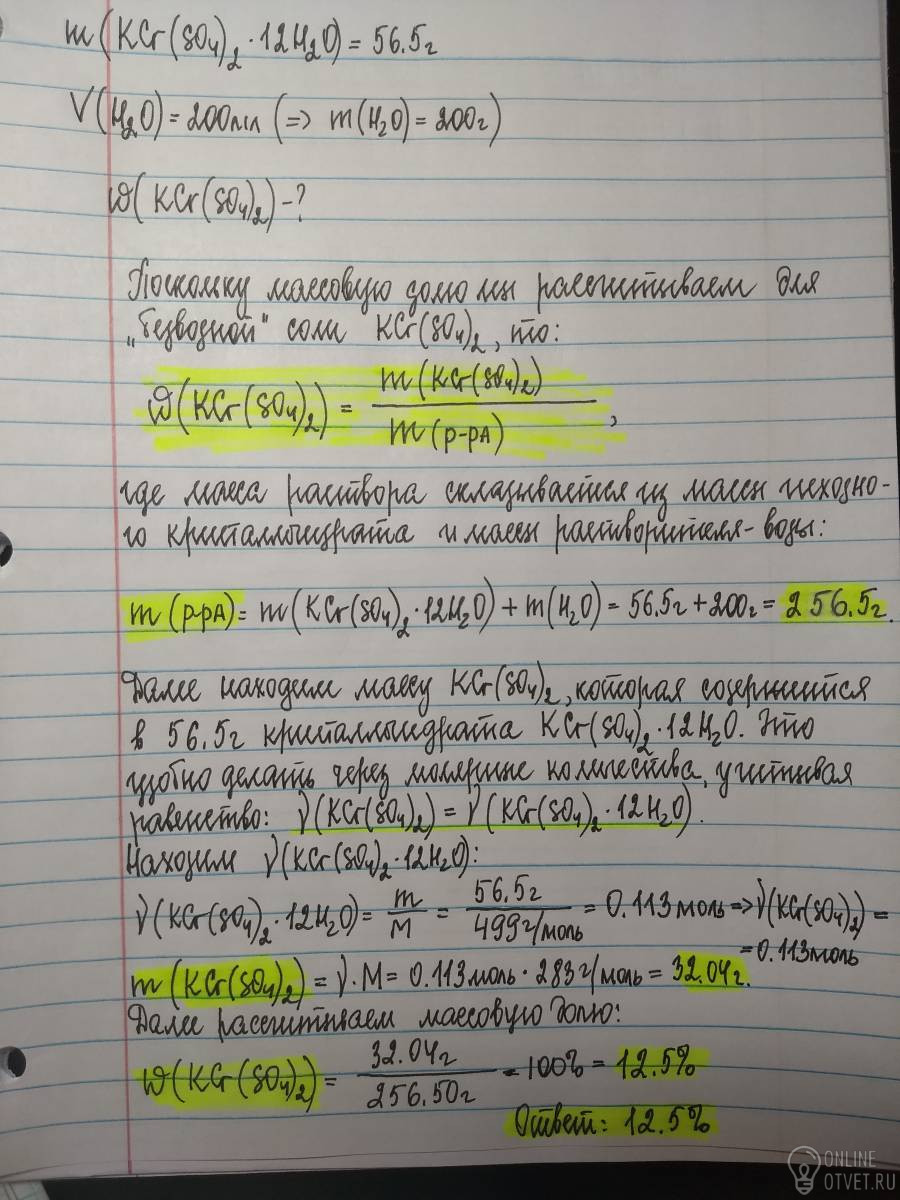 m(KCr(SO₄)₂·12H₂O)=56.5г
V(H₂O)=200мл (=> m(H₂O)=200г)
ω(KCr(SO₄)₂)-?
Поскольку массовую долю мы рассчитываем для
„безводной" соли KCr(SO₄)₂, то:
ω(KCr(SO₄)₂) = m(KCr(SO₄)₂) / m(р-ра) ,
где масса раствора складывается из массы исходно-
го кристаллогидрата и массы растворителя-воды:
m(р-ра)= m(KCr(SO₄)₂·12H₂O)+m(H₂O)=56.5г+200г=256.5г.
Далее находим массу KCr(SO₄)₂, которая содержится
в 56.5г кристаллгидрата KCr(SO₄)₂·12H₂O. Это
удобно делать через молярные количества, учитывая
равенство: ν(KCr(SO₄)₂)=ν(KCr(SO₄)₂·12H₂O).
Находим ν(KCr(SO₄)₂·12H₂O):
ν(KCr(SO₄)₂·12H₂O)= m/M = 56.5г / 499г/моль =0.113моль=>ν(KCr(SO₄)₂)=
=0.113моль
m(KCr(SO₄)₂)=ν·M=0.113моль·283г/моль=32.04г.
Далее рассчитываем массовую долю:
ω(KCr(SO₄)₂)= 32.04г / 256.50г ·100%=12.5%
Ответ: 12.5%
ONLINE
OTVET.RU